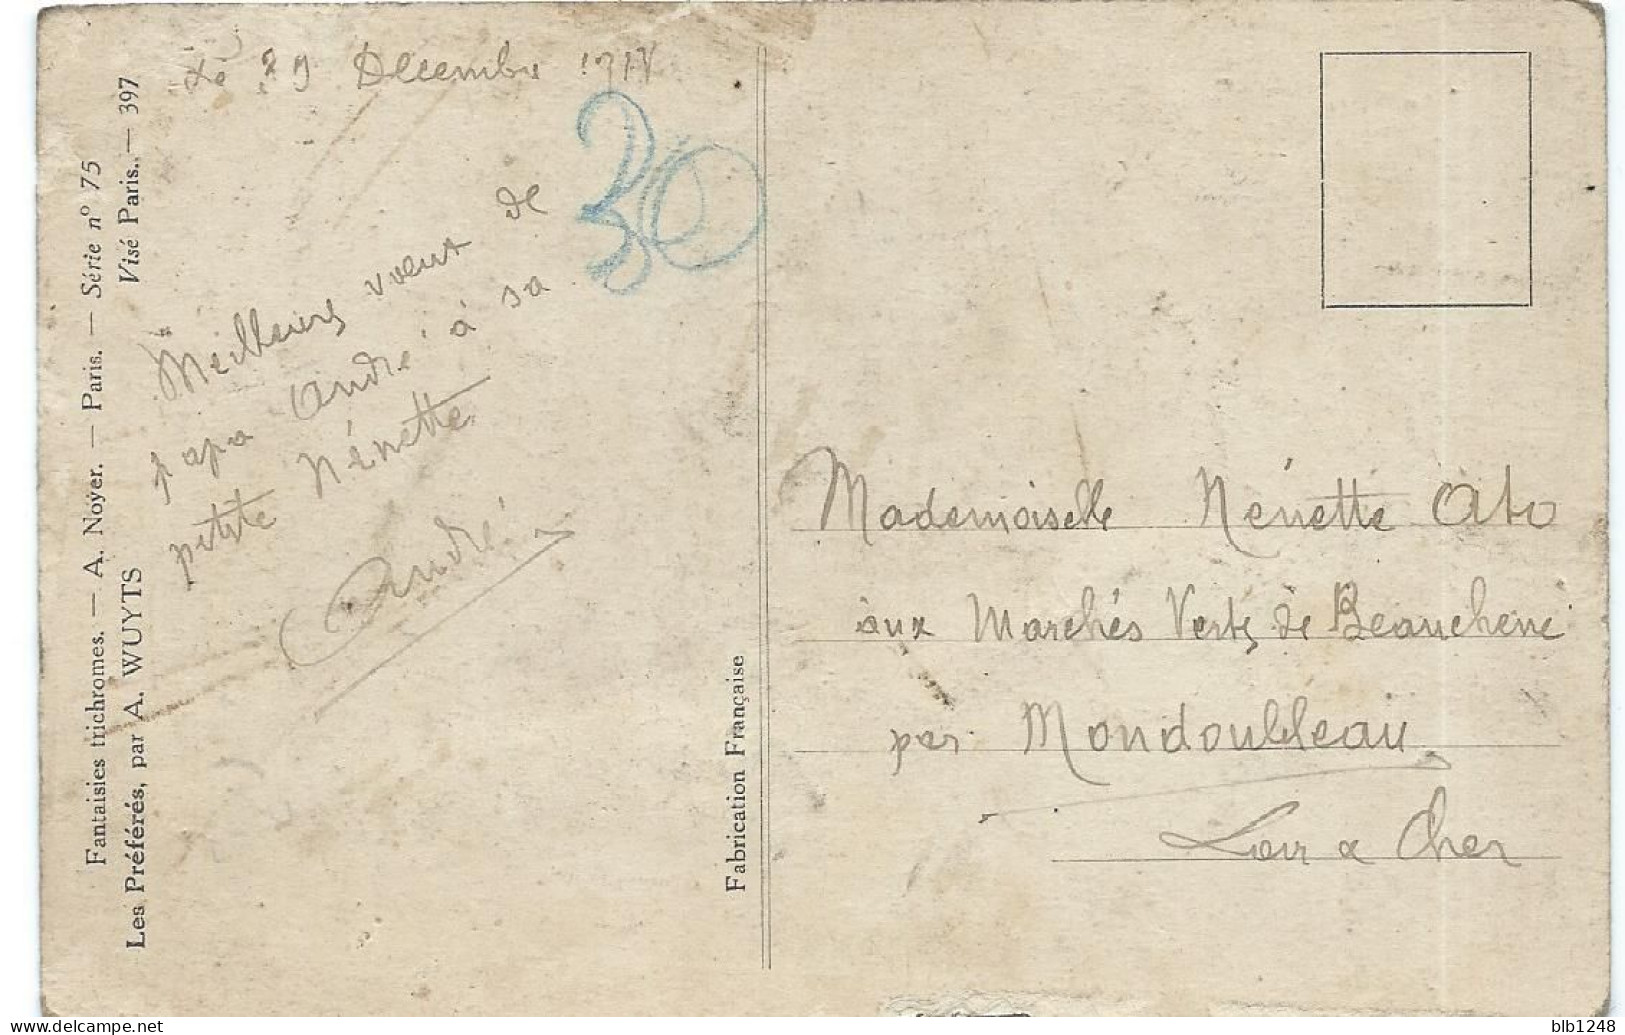 Le 29 Decembre
30
Meilleurs voeux de
papa André à sa
petite Nénette
André
Fantaisies trichromes. — A. Noyer. — Paris. — Série nº 75
Les Préférés, par A. WUYTS
Visé Paris. — 397
Fabrication Française
Mademoiselle Nénette
aux Marchés Verts de Beauchene
par Mondoubleau
Loir & Cher
https://www.delcampe.net
blb1248